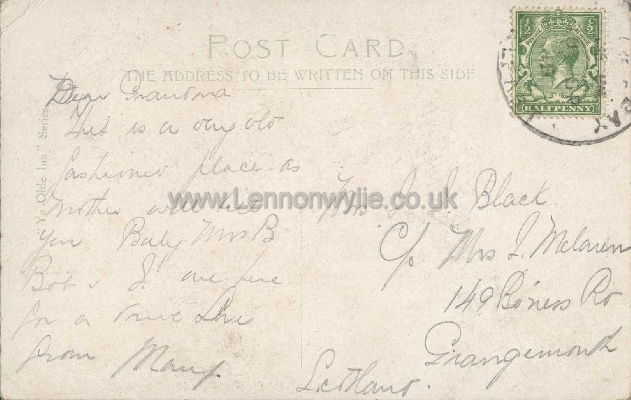 POST CARD
THE ADDRESS TO BE WRITTEN ON THIS SIDE
"Ye Olde Inn" Series
½ ½
HALFPENNY
BAY
Dear Grandma
This is a very old
fashioned place as
Mother will tell
you Baby Mrs B
Bob & I are here
for a
from
www.Lennonwylie.co.uk
Mrs J. Black
C/o Mrs J. Melaren
149 Boness Rd
Grangemouth
Scotland.